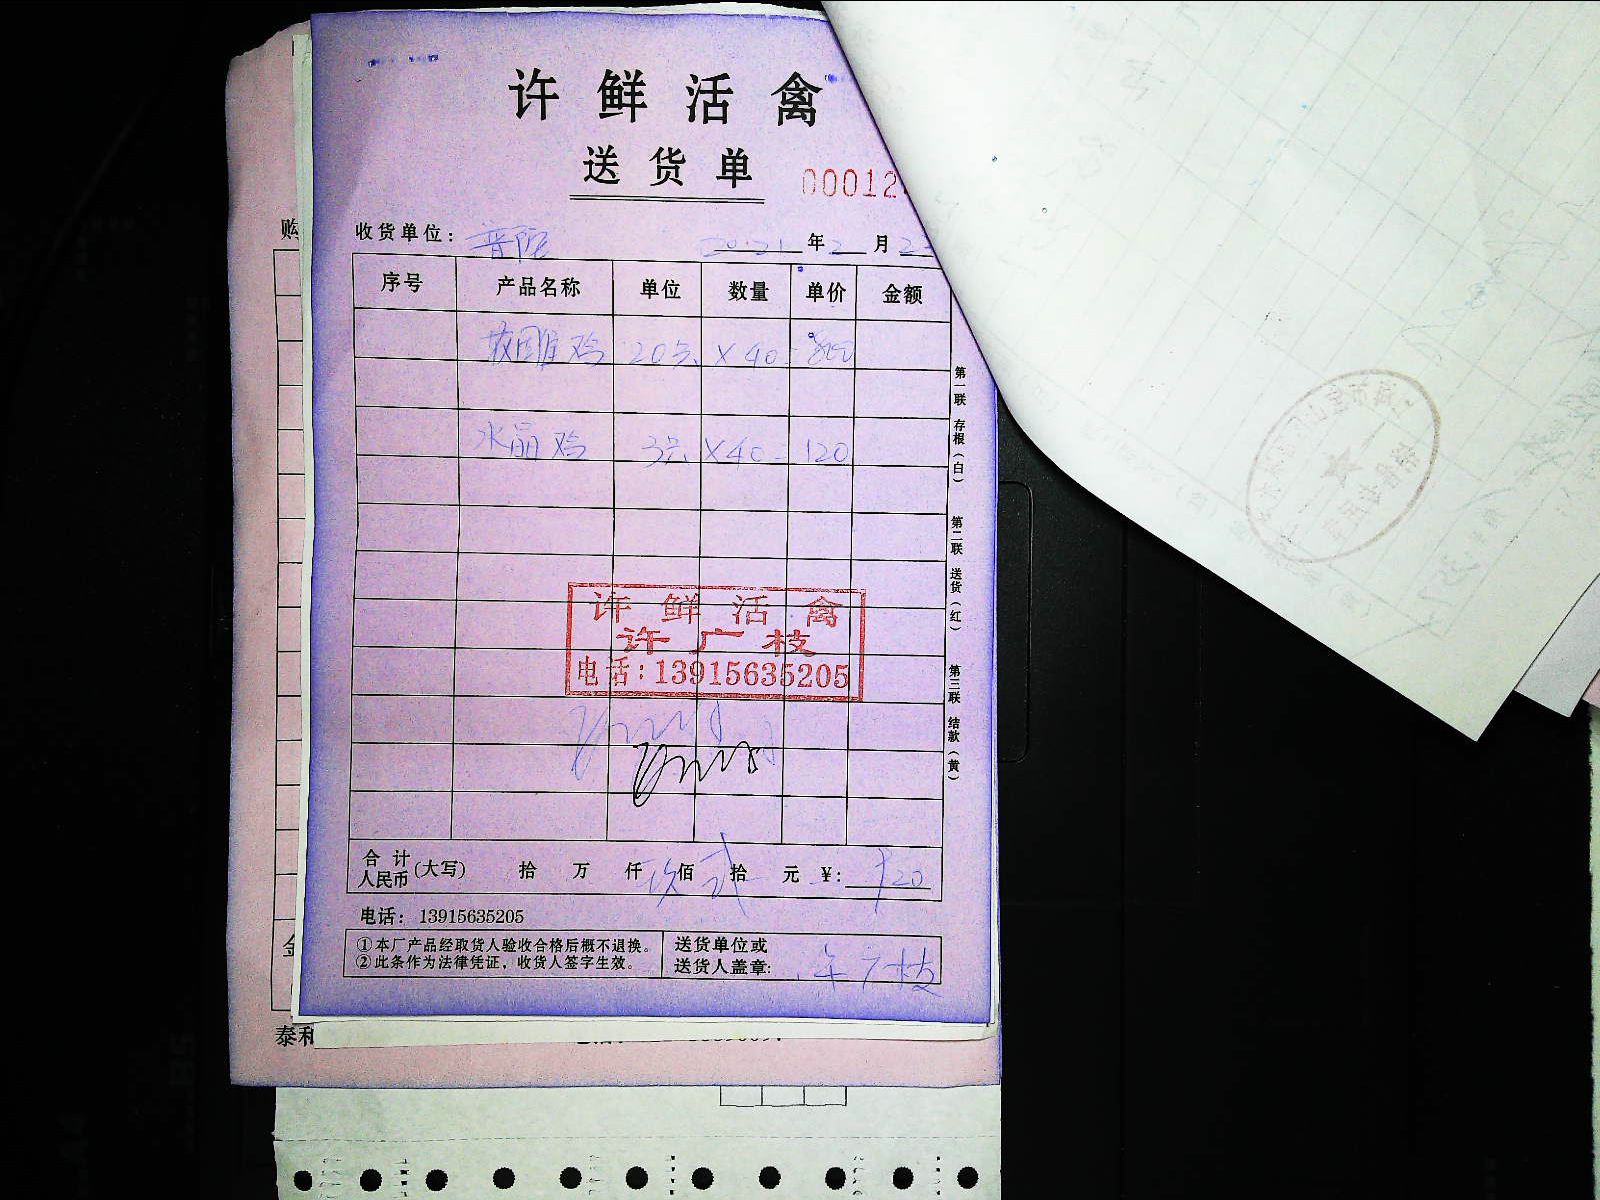 许鲜活禽
送货单
00012
收货单位: 普陀 2021年2月2
序号 产品名称 单位 数量 单价 金额
鸡 20只 X 40 = 800
水晶鸡 3只 X 40 = 120
第一联 存根(白) 第二联 送货(红) 第三联 结款(黄)
许鲜活禽
许广枝
电话:13915635205
合计人民币(大写) 拾 万 仟 玖佰 贰拾 元 ¥: 920
电话: 13915635205
①本厂产品经取货人验收合格后概不退换。
②此条作为法律凭证,收货人签字生效。
送货单位或
送货人盖章: 许广枝
购
泰和